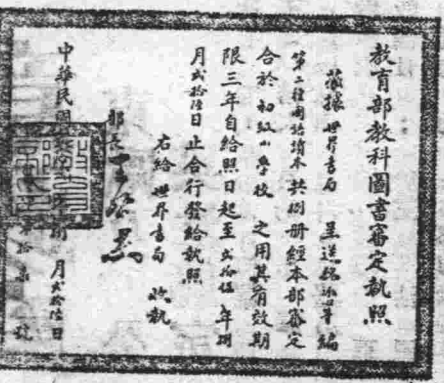 教育部教科圖書審定執照
茲據世界書局呈送魏冰心等編
第二種國語讀本共捌册經本部審定
合於初級小學校之用其有效期
限三年自給照日起至弍拾伍年捌
月弍拾陸日止合行發給執照
右給世界書局收執
部長王
中華民國 月弍拾陸日